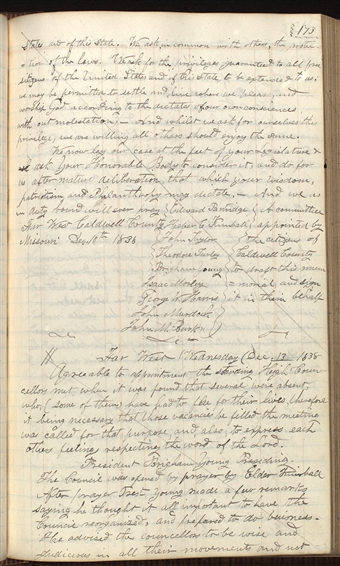 173
States and of this State. We ask, in common with others, the protec-
-tion of the laws. We ask for the privileges guaranteed to all free
citizens of the United States and of this State to be extended to us;
we may be permitted to settle and live where we please, and
worship God according to the dictates of our conciences
with out molestation. — And whilst we ask for ourselves this
privilege, we are willing all others should enjoy the same.
We now lay our case at the feet of your legislature &
ask your Honorable Body to consider it, and do for
us after mature deliberation, that which your wisdom,
patriotism and Philanthorpy may dictate, — And we as
in duty bound will ever pray
Far West Caldwell County
Missouri Dec 10th 1838
Edward Partridge
Heber C. Kimball
John Taylor
Theodore Turley
Brigham Young
Isaac Morley
George W. Harris
John Murdock
John M. Burk
A committee
appointed by
the citizens of
Caldwell County
to draft this mem
= morial and sign
it in their behalf
Far West Wednesday Dec. 13 1838
Agreeable to appointment the standing High Coun
cellors met, when it was found that several were absent,
who, (some of them) have had to flee for their lives, therefore
it being necessary that those vacancies be filled the meeting
was called for that purpose and also to express each
others feelings respecting the word of the Lord.
President Brigham Young Presiding.
The Council was opened by prayer by Elder Kimball
After prayer Pres't Young made a few remarks,
saying he thought it all important to have the
Council reorganized, and prepared to do business.
He advised the councellors to be wise and
judicious in all their movements and not